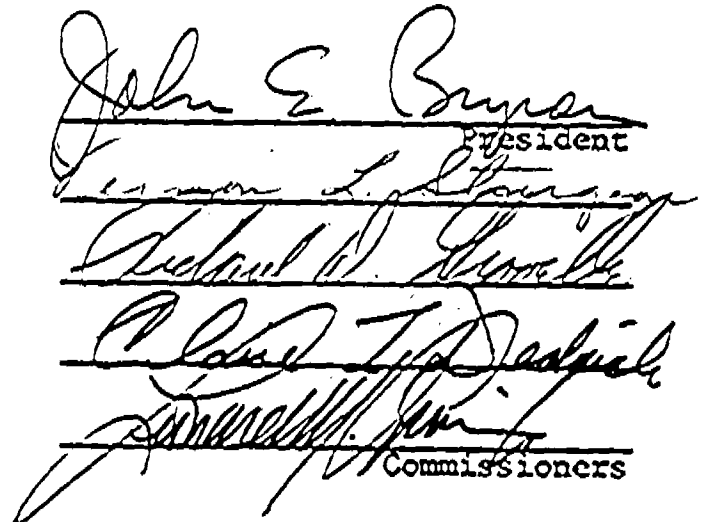 John E Bryson
President
Vernon L. Sturgeon
Richard D. Gravelle
Claire T. Dedrick
Leonard M. Grimes
Commissioners